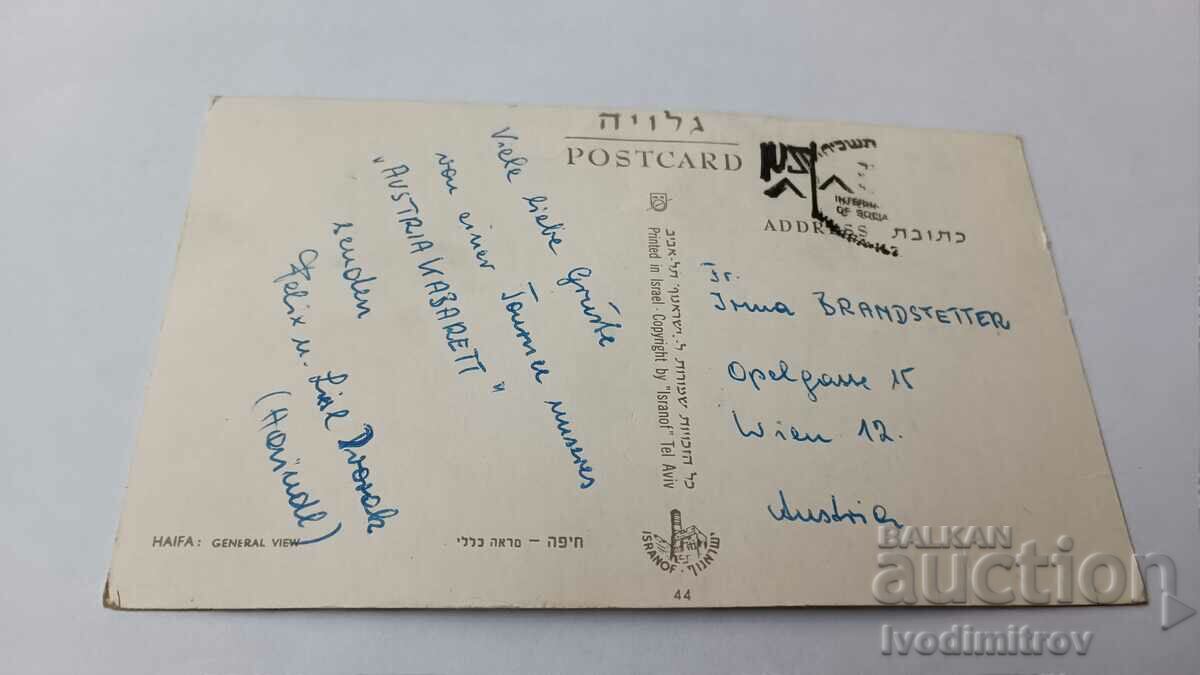 גלויה
POSTCARD
תשכ"ח
INTERN
OF SODIA
ADDRESS כתובת
Viele liebe Grüße
von einer Tournee unseres
"AUSTRIA KABARETT"
senden
Felix u. Lisl Dvorak
(Haindl)
Fr.
Irma BRANDSTETTER
Opelgasse 15
Wien 12.
Austria
כל הזכויות שמורות ל.ישראנוף תל-אביב
Printed in Israel - Copyright by "Isranof" Tel Aviv
HAIFA: GENERAL VIEW
חיפה - מראה כללי
ISRANOF · ישראנוף
44
BALKAN
auction
Ivodimitrov